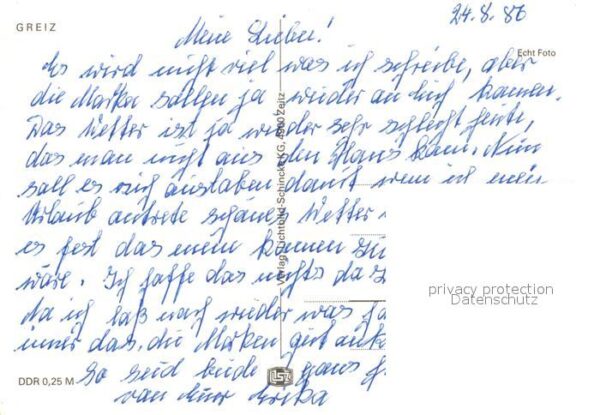 GREIZ
24.8.86
Meine Lieben!
Echt Foto
Es wird nicht viel was ich schreibe, aber
die Marken sollen ja wieder an Euch kommen.
Das Wetter ist ja wieder sehr schlecht heute,
das man nicht aus den Haus kann. Nun
soll es sich austoben damit wenn ich mein
Urlaub antrete schönes Wetter
es fest das mein kommen
wäre. Ich hoffe das nichts da
da ich laß noch wieder was
immer das, die Marken gut
So seid beide ganz
von Eurer Erika
Verlag Lichtbild-Schincke KG, 4900 Zeitz
privacy protection
Datenschutz
DDR 0,25 M